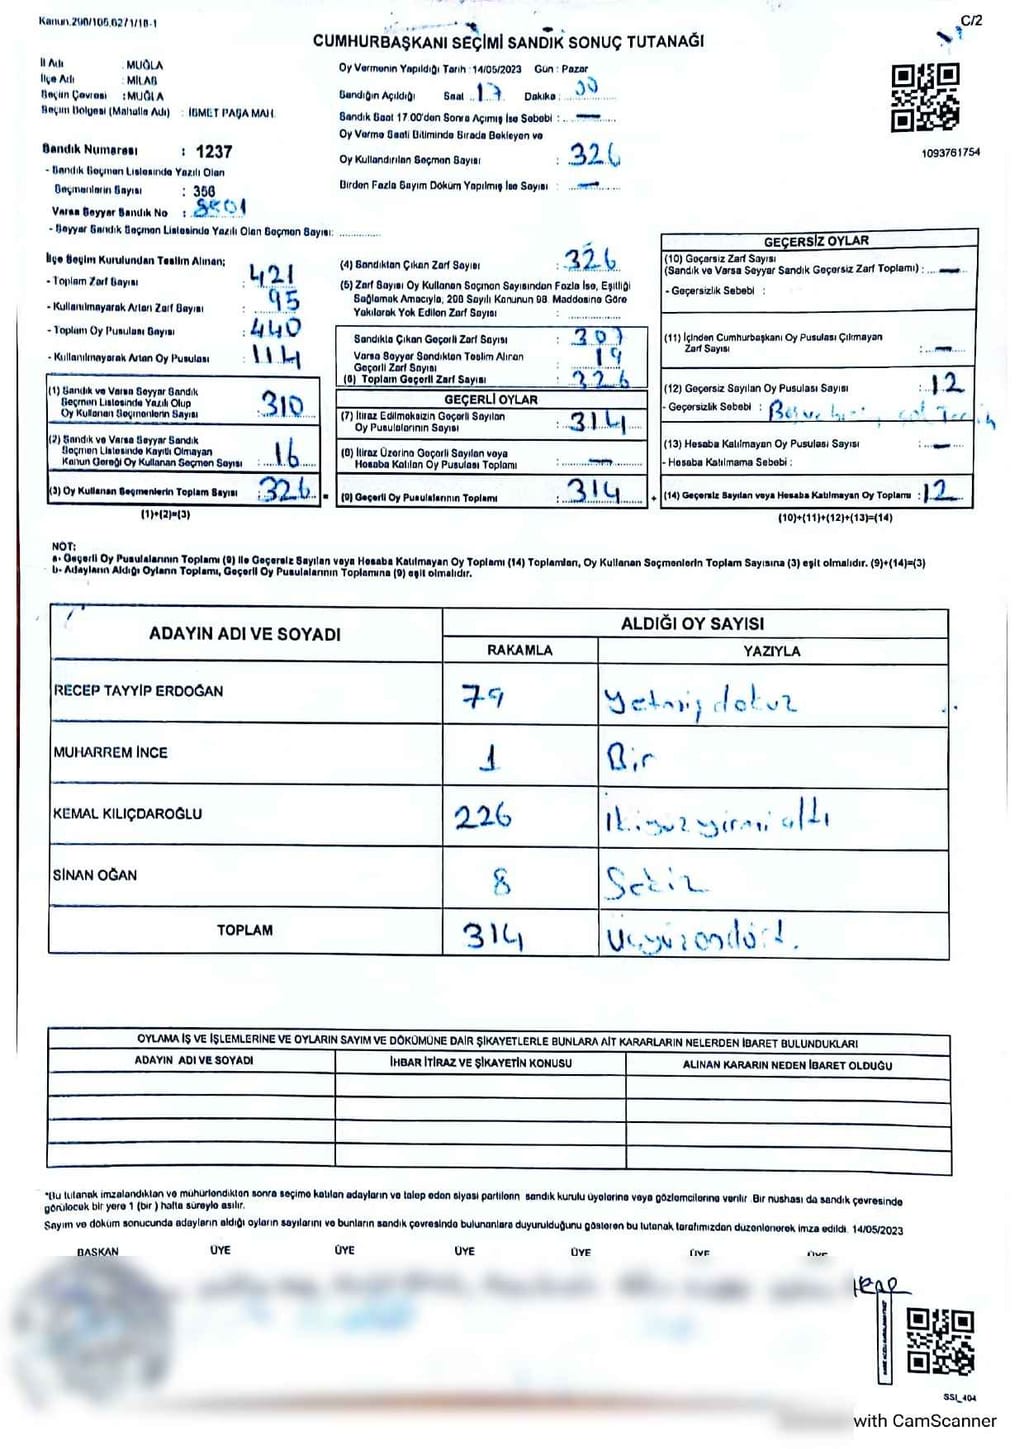 Kanun.290/105.62/1/18-1
C/2
CUMHURBAŞKANI SEÇİMİ SANDIK SONUÇ TUTANAĞI
İl Adı : MUĞLA
İlçe Adı : MİLAS
Seçim Çevresi : MUĞLA
Seçim Bölgesi (Mahalle Adı) : İSMET PAŞA MAH.
Sandık Numarası : 1237
- Sandık Seçmen Listesinde Yazılı Olan
Seçmenlerin Sayısı : 356
Varsa Seyyar Sandık No :
- Seyyar Sandık Seçmen Listesinde Yazılı Olan Seçmen Sayısı:
Oy Vermenin Yapıldığı Tarih :14/05/2023 Gün : Pazar
Sandığın Açıldığı Saat : 17 Dakika : 00
Sandık Saat 17.00'den Sonra Açılmış İse Sebebi : —
Oy Verme Saati Bitiminde Sırada Bekleyen ve
Oy Kullandırılan Seçmen Sayısı : 326
Birden Fazla Sayım Döküm Yapılmış İse Sayısı : —
1093761754
İlçe Seçim Kurulundan Teslim Alınan;
- Toplam Zarf Sayısı : 421
- Kullanılmayarak Artan Zarf Sayısı : 95
- Toplam Oy Pusulası Sayısı : 440
- Kullanılmayarak Artan Oy Pusulası : 114
(1) Sandık ve Varsa Seyyar Sandık
Seçmen Listesinde Yazılı Olup
Oy Kullanan Seçmenlerin Sayısı : 310
(2) Sandık ve Varsa Seyyar Sandık
Seçmen Listesinde Kayıtlı Olmayan
Kanun Gereği Oy Kullanan Seçmen Sayısı : 16
(3) Oy Kullanan Seçmenlerin Toplam Sayısı : 326 =
(1)+(2)=(3)
(4) Sandıktan Çıkan Zarf Sayısı : 326
(5) Zarf Sayısı Oy Kullanan Seçmen Sayısından Fazla İse, Eşitliği
Sağlamak Amacıyla, 298 Sayılı Kanunun 98. Maddesine Göre
Yakılarak Yok Edilen Zarf Sayısı :
Sandıkta Çıkan Geçerli Zarf Sayısı : 307
Varsa Seyyar Sandıktan Teslim Alınan
Geçerli Zarf Sayısı : 19
(6) Toplam Geçerli Zarf Sayısı : 326
GEÇERLİ OYLAR
(7) İtiraz Edilmeksizin Geçerli Sayılan
Oy Pusulalarının Sayısı : 314
(8) İtiraz Üzerine Geçerli Sayılan veya
Hesaba Katılan Oy Pusulası Toplamı : —
(9) Geçerli Oy Pusulalarının Toplamı : 314 +
GEÇERSİZ OYLAR
(10) Geçersiz Zarf Sayısı
(Sandık ve Varsa Seyyar Sandık Geçersiz Zarf Toplamı) : —
- Geçersizlik Sebebi :
(11) İçinden Cumhurbaşkanı Oy Pusulası Çıkmayan
Zarf Sayısı : —
(12) Geçersiz Sayılan Oy Pusulası Sayısı : 12
- Geçersizlik Sebebi :
(13) Hesaba Katılmayan Oy Pusulası Sayısı : —
- Hesaba Katılmama Sebebi :
(14) Geçersiz Sayılan veya Hesaba Katılmayan Oy Toplamı : 12
(10)+(11)+(12)+(13)=(14)
NOT:
a- Geçerli Oy Pusulalarının Toplamı (9) ile Geçersiz Sayılan veya Hesaba Katılmayan Oy Toplamı (14) Toplamları, Oy Kullanan Seçmenlerin Toplam Sayısına (3) eşit olmalıdır. (9)+(14)=(3)
b- Adayların Aldığı Oyların Toplamı, Geçerli Oy Pusulalarının Toplamına (9) eşit olmalıdır.
ADAYIN ADI VE SOYADI
ALDIĞI OY SAYISI
RAKAMLA YAZIYLA
RECEP TAYYİP ERDOĞAN 79 yetmiş dokuz
MUHARREM İNCE 1 Bir
KEMAL KILIÇDAROĞLU 226 ikiyüzyirmi altı
SİNAN OĞAN 8 Sekiz
TOPLAM 314 Üçyüzondört.
OYLAMA İŞ VE İŞLEMLERİNE VE OYLARIN SAYIM VE DÖKÜMÜNE DAİR ŞİKAYETLERLE BUNLARA AİT KARARLARIN NELERDEN İBARET BULUNDUKLARI
ADAYIN ADI VE SOYADI İHBAR İTİRAZ VE ŞİKAYETİN KONUSU ALINAN KARARIN NEDEN İBARET OLDUĞU
*Bu tutanak imzalandıktan ve mühürlendikten sonra seçime katılan adayların ve talep eden siyasi partilerin sandık kurulu üyelerine veya gözlemcilerine verilir. Bir nushası da sandık çevresinde
görülecek bir yere 1 (bir ) hafta süreyle asılır.
Sayım ve döküm sonucunda adayların aldığı oyların sayılarını ve bunların sandık çevresinde bulunanlara duyurulduğunu gösteren bu tutanak tarafımızdan düzenlenerek imza edildi. 14/05/2023
BAŞKAN ÜYE ÜYE ÜYE ÜYE ÜYE ÜYE
SSİ_404
with CamScanner